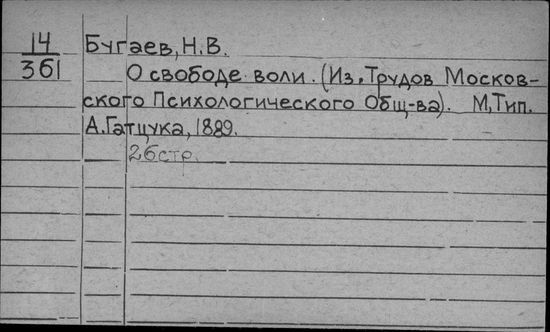 14
361
Бугаев, Н.В.
О свободе воли. (Из „Трудов Московского
ского Психологического Общ-ва). М, Тип.
А. Гатцука, 1889.
26 стр.